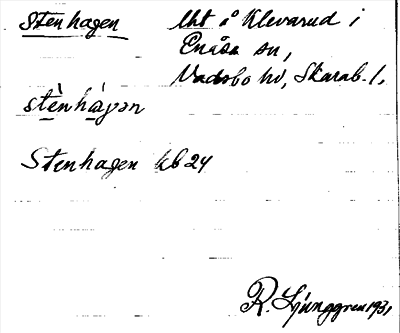 Stenhagen
lht å Klevarud i
Enåsa sn,
Vadsbo hd, Skarab. l.
stènhàgən
Stenhagen kb 24
R. Ljunggren 1931